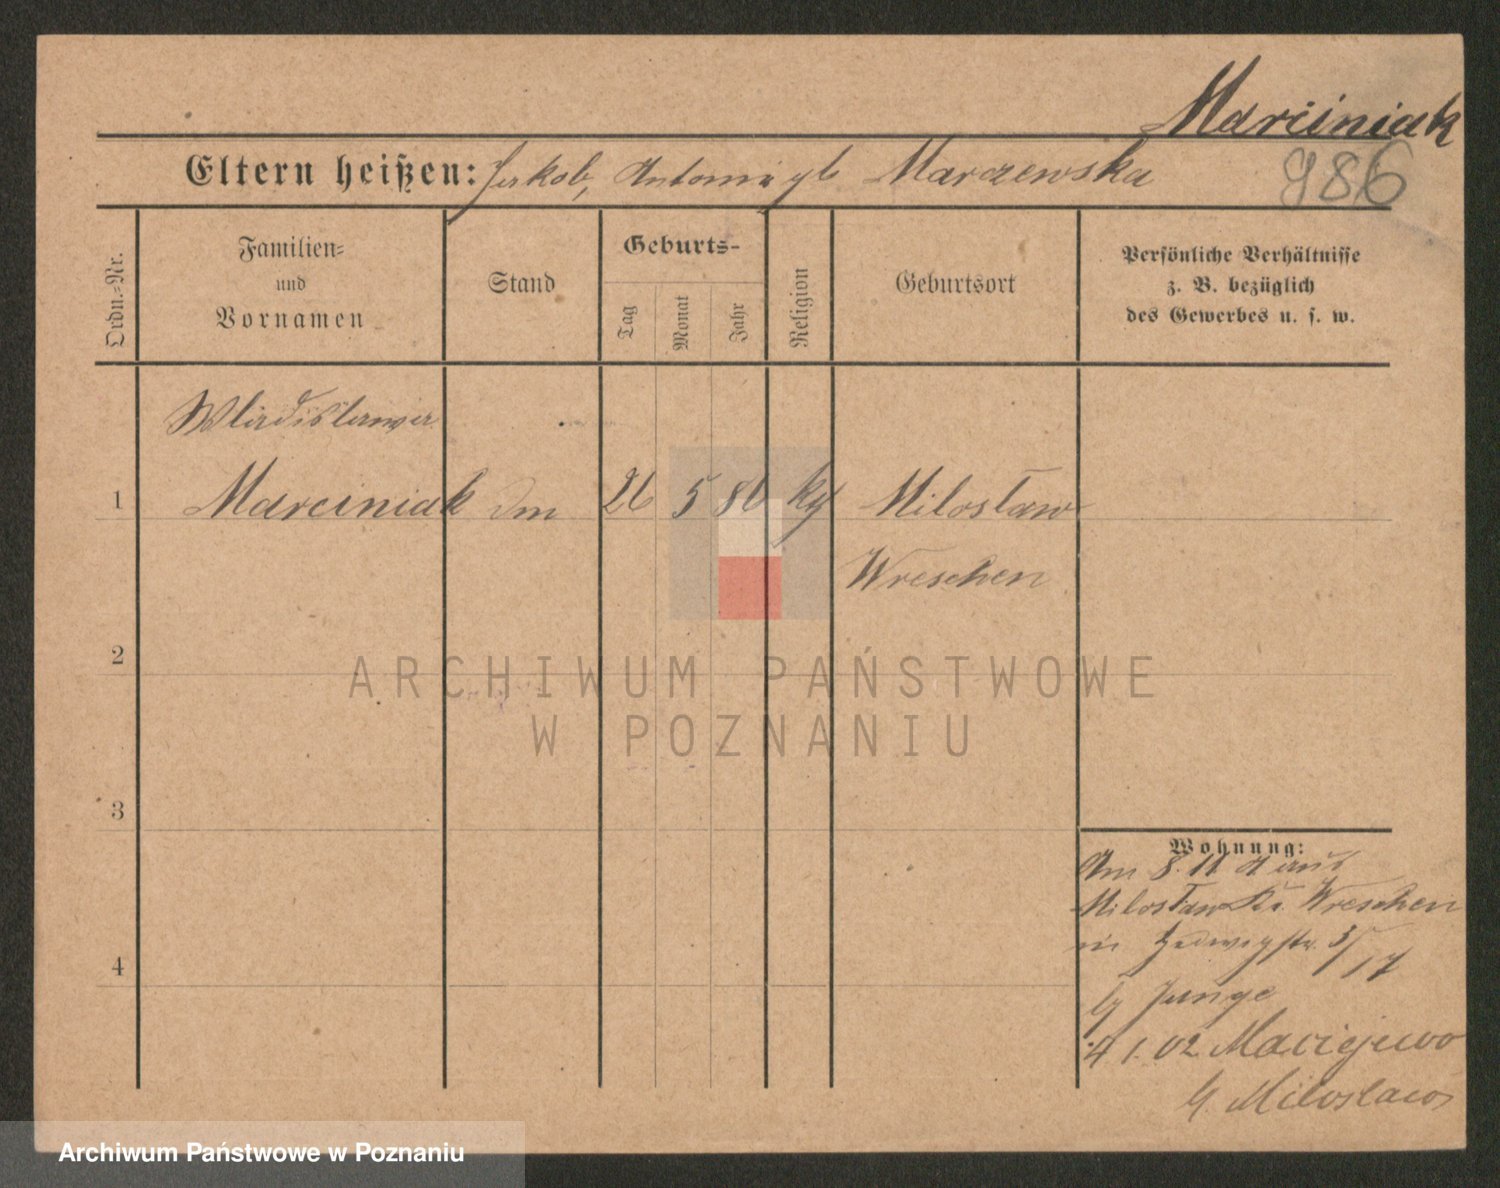 Marciniak
986
Eltern heißen: Jakob, Antonie gb Marczewska
Ordn.-Nr.
Familien-
und
Vornamen
Stand
Geburts-
Tag
Monat
Jahr
Religion
Geburtsort
Persönliche Verhältnisse
z. B. bezüglich
des Gewerbes u. s. w.
Wladislawa
1 Marciniak 26 5 86 Miloslaw
Wreschen
2
ARCHIWUM PAŃSTWOWE
W POZNANIU
3
Wohnung:
Am 8. 11 aus
Miloslaw Kr. Wreschen
in Hedwigstr. 3/17
b/ Junge
4 1. 02 Maciejewo
b. Miloslaw
4
Archiwum Państwowe w Poznaniu